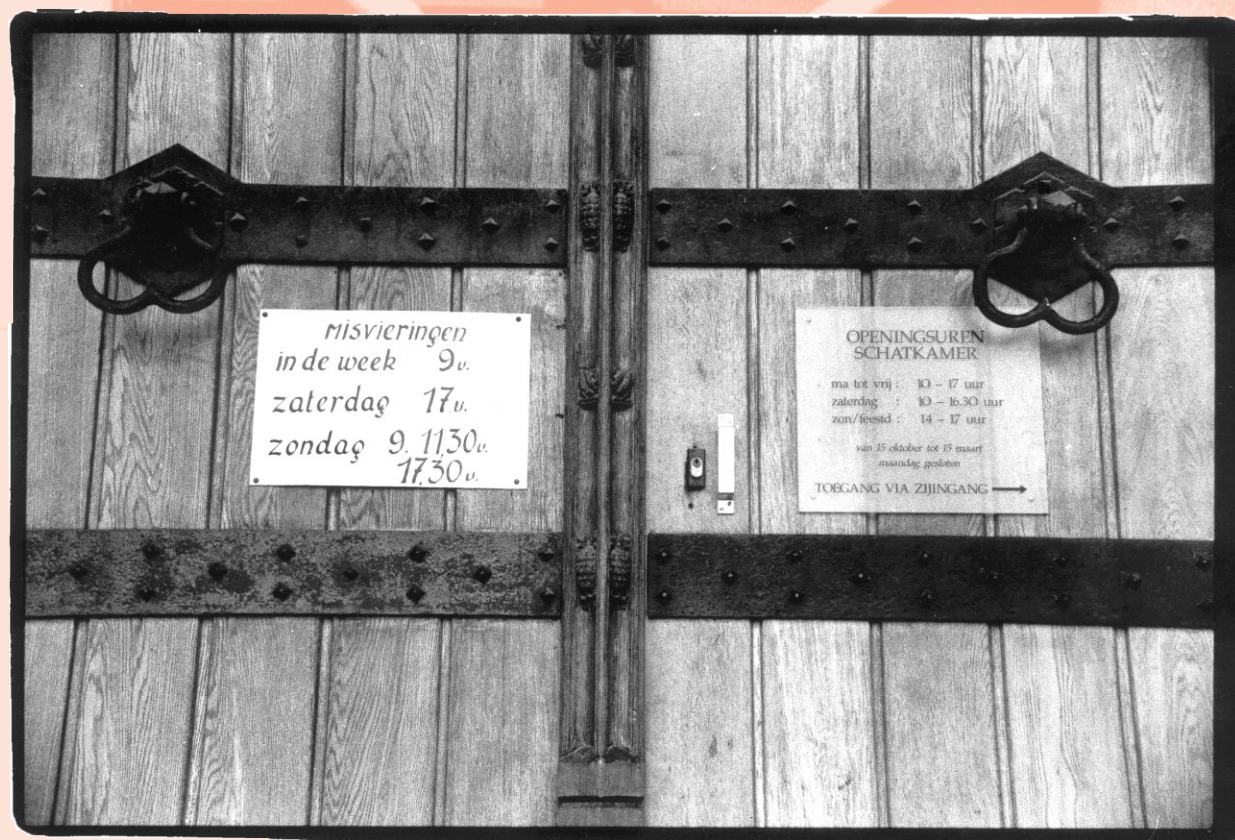 Misvieringen
in de week 9 u.
zaterdag 17 u.
zondag 9. 11,30 u.
17,30 u.
OPENINGSUREN
SCHATKAMER
ma tot vrij : 10 – 17 uur
zaterdag : 10 – 16.30 uur
zon/feestd : 14 – 17 uur
van 15 oktober tot 15 maart
maandag gesloten
TOEGANG VIA ZIJINGANG →